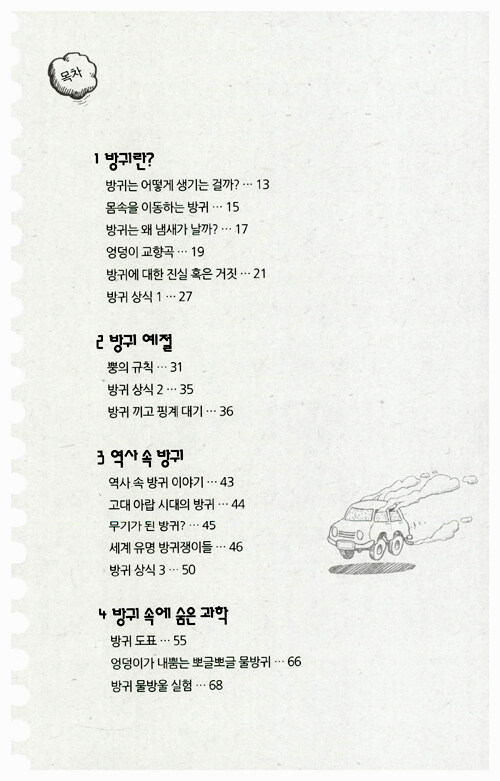 목차
1 방귀란?
방귀는 어떻게 생기는 걸까? ··· 13
몸속을 이동하는 방귀 ··· 15
방귀는 왜 냄새가 날까? ··· 17
엉덩이 교향곡 ··· 19
방귀에 대한 진실 혹은 거짓 ··· 21
방귀 상식 1 ··· 27
2 방귀 예절
뿡의 규칙 ··· 31
방귀 상식 2 ··· 35
방귀 끼고 핑계 대기 ··· 36
3 역사 속 방귀
역사 속 방귀 이야기 ··· 43
고대 아랍 시대의 방귀 ··· 44
무기가 된 방귀? ··· 45
세계 유명 방귀쟁이들 ··· 46
방귀 상식 3 ··· 50
4 방귀 속에 숨은 과학
방귀 도표 ··· 55
엉덩이가 내뿜는 뽀글뽀글 물방귀 ··· 66
방귀 물방울 실험 ··· 68